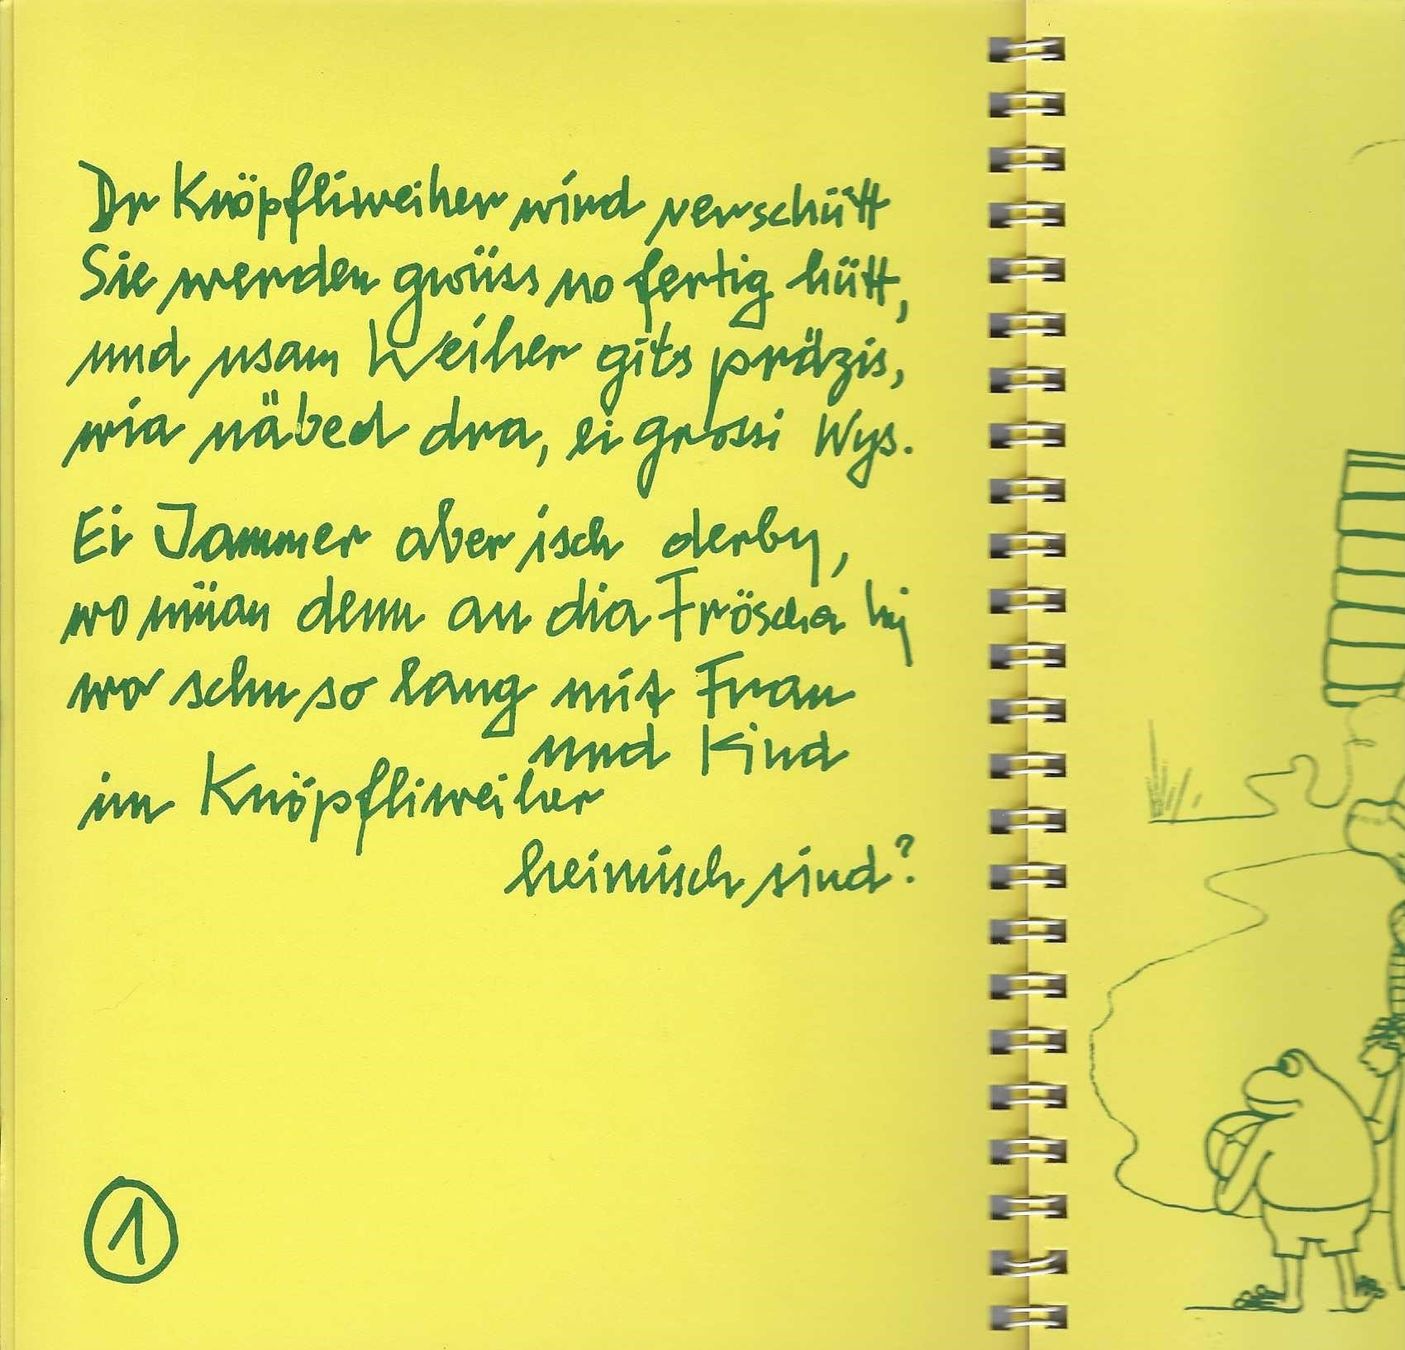 Dr Knöpfliweiher wird verschütt
Sie werden gwüss no fertig hütt,
und usam Weiher gits präzis,
wia näbed dra, ei grossi Wys.
Ei Jammer aber isch derby,
wo müan denn an dia Fröscha hy
wo schu so lang mit Frau
und Kind
im Knöpfliweiher
heimisch sind?
1